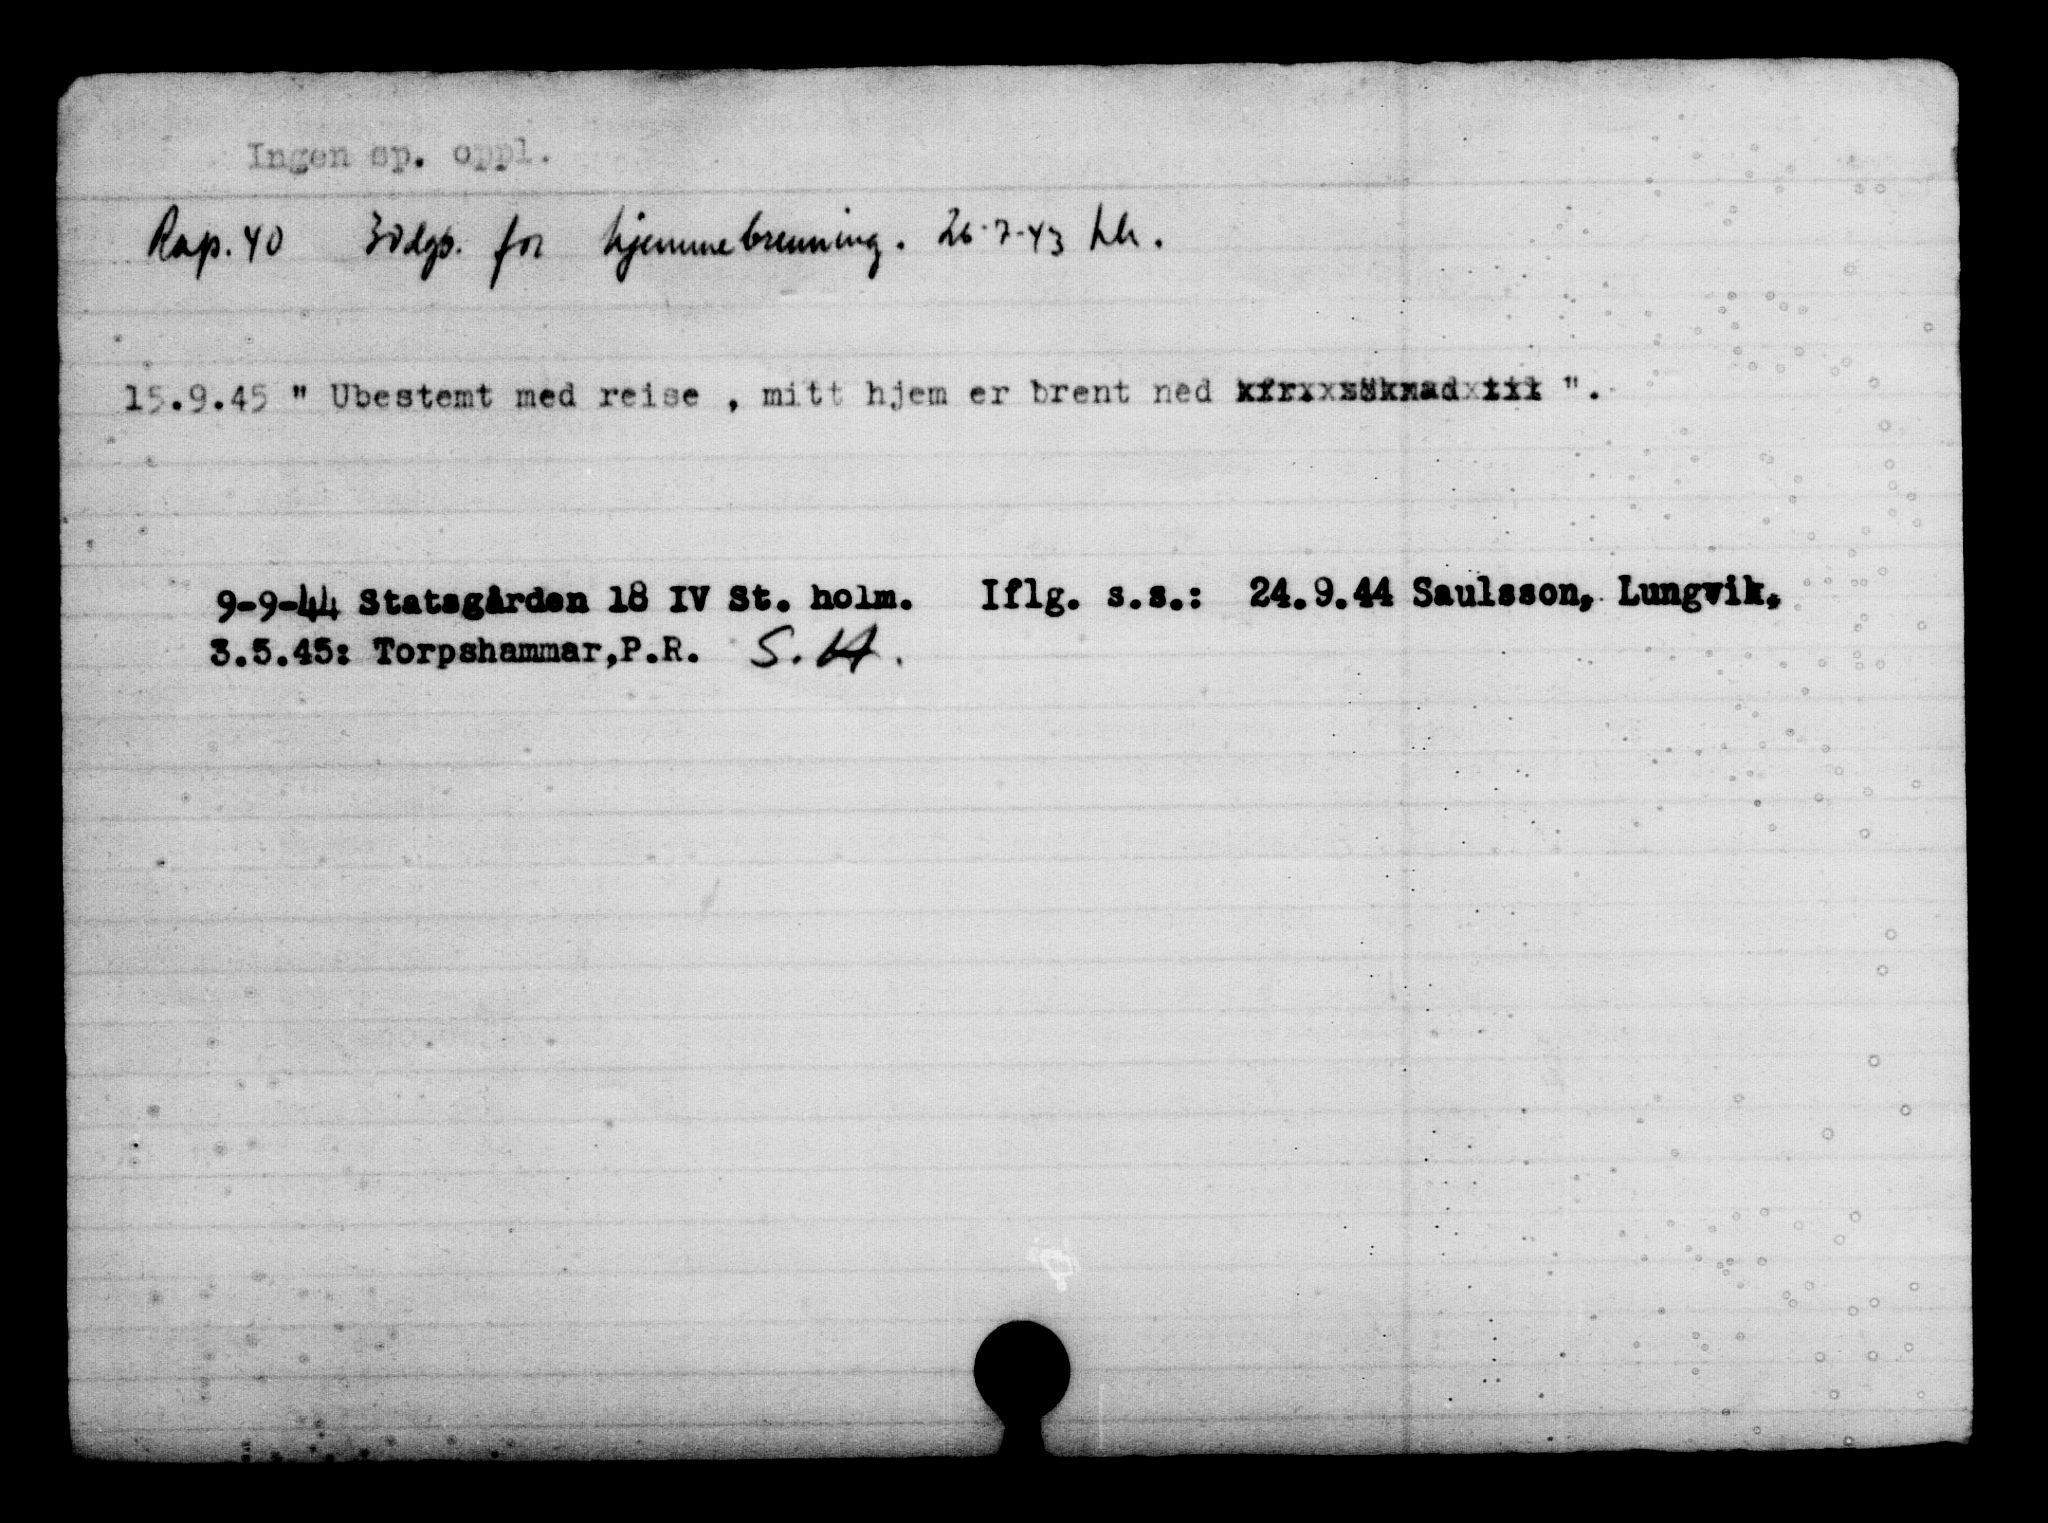 Ingen sp. oppl.
Rap. 40 30 dgs. for hjemmebrenning. 26-7-43 hh.
15.9.45 " Ubestemt med reise , mitt hjem er brent ned ".
9-9-44 Statsgården 18 IV St. holm. Iflg. s.s.: 24.9.44 Saulsson, Lungvik,
3.5.45: Torpshammar,P.R. S. H.